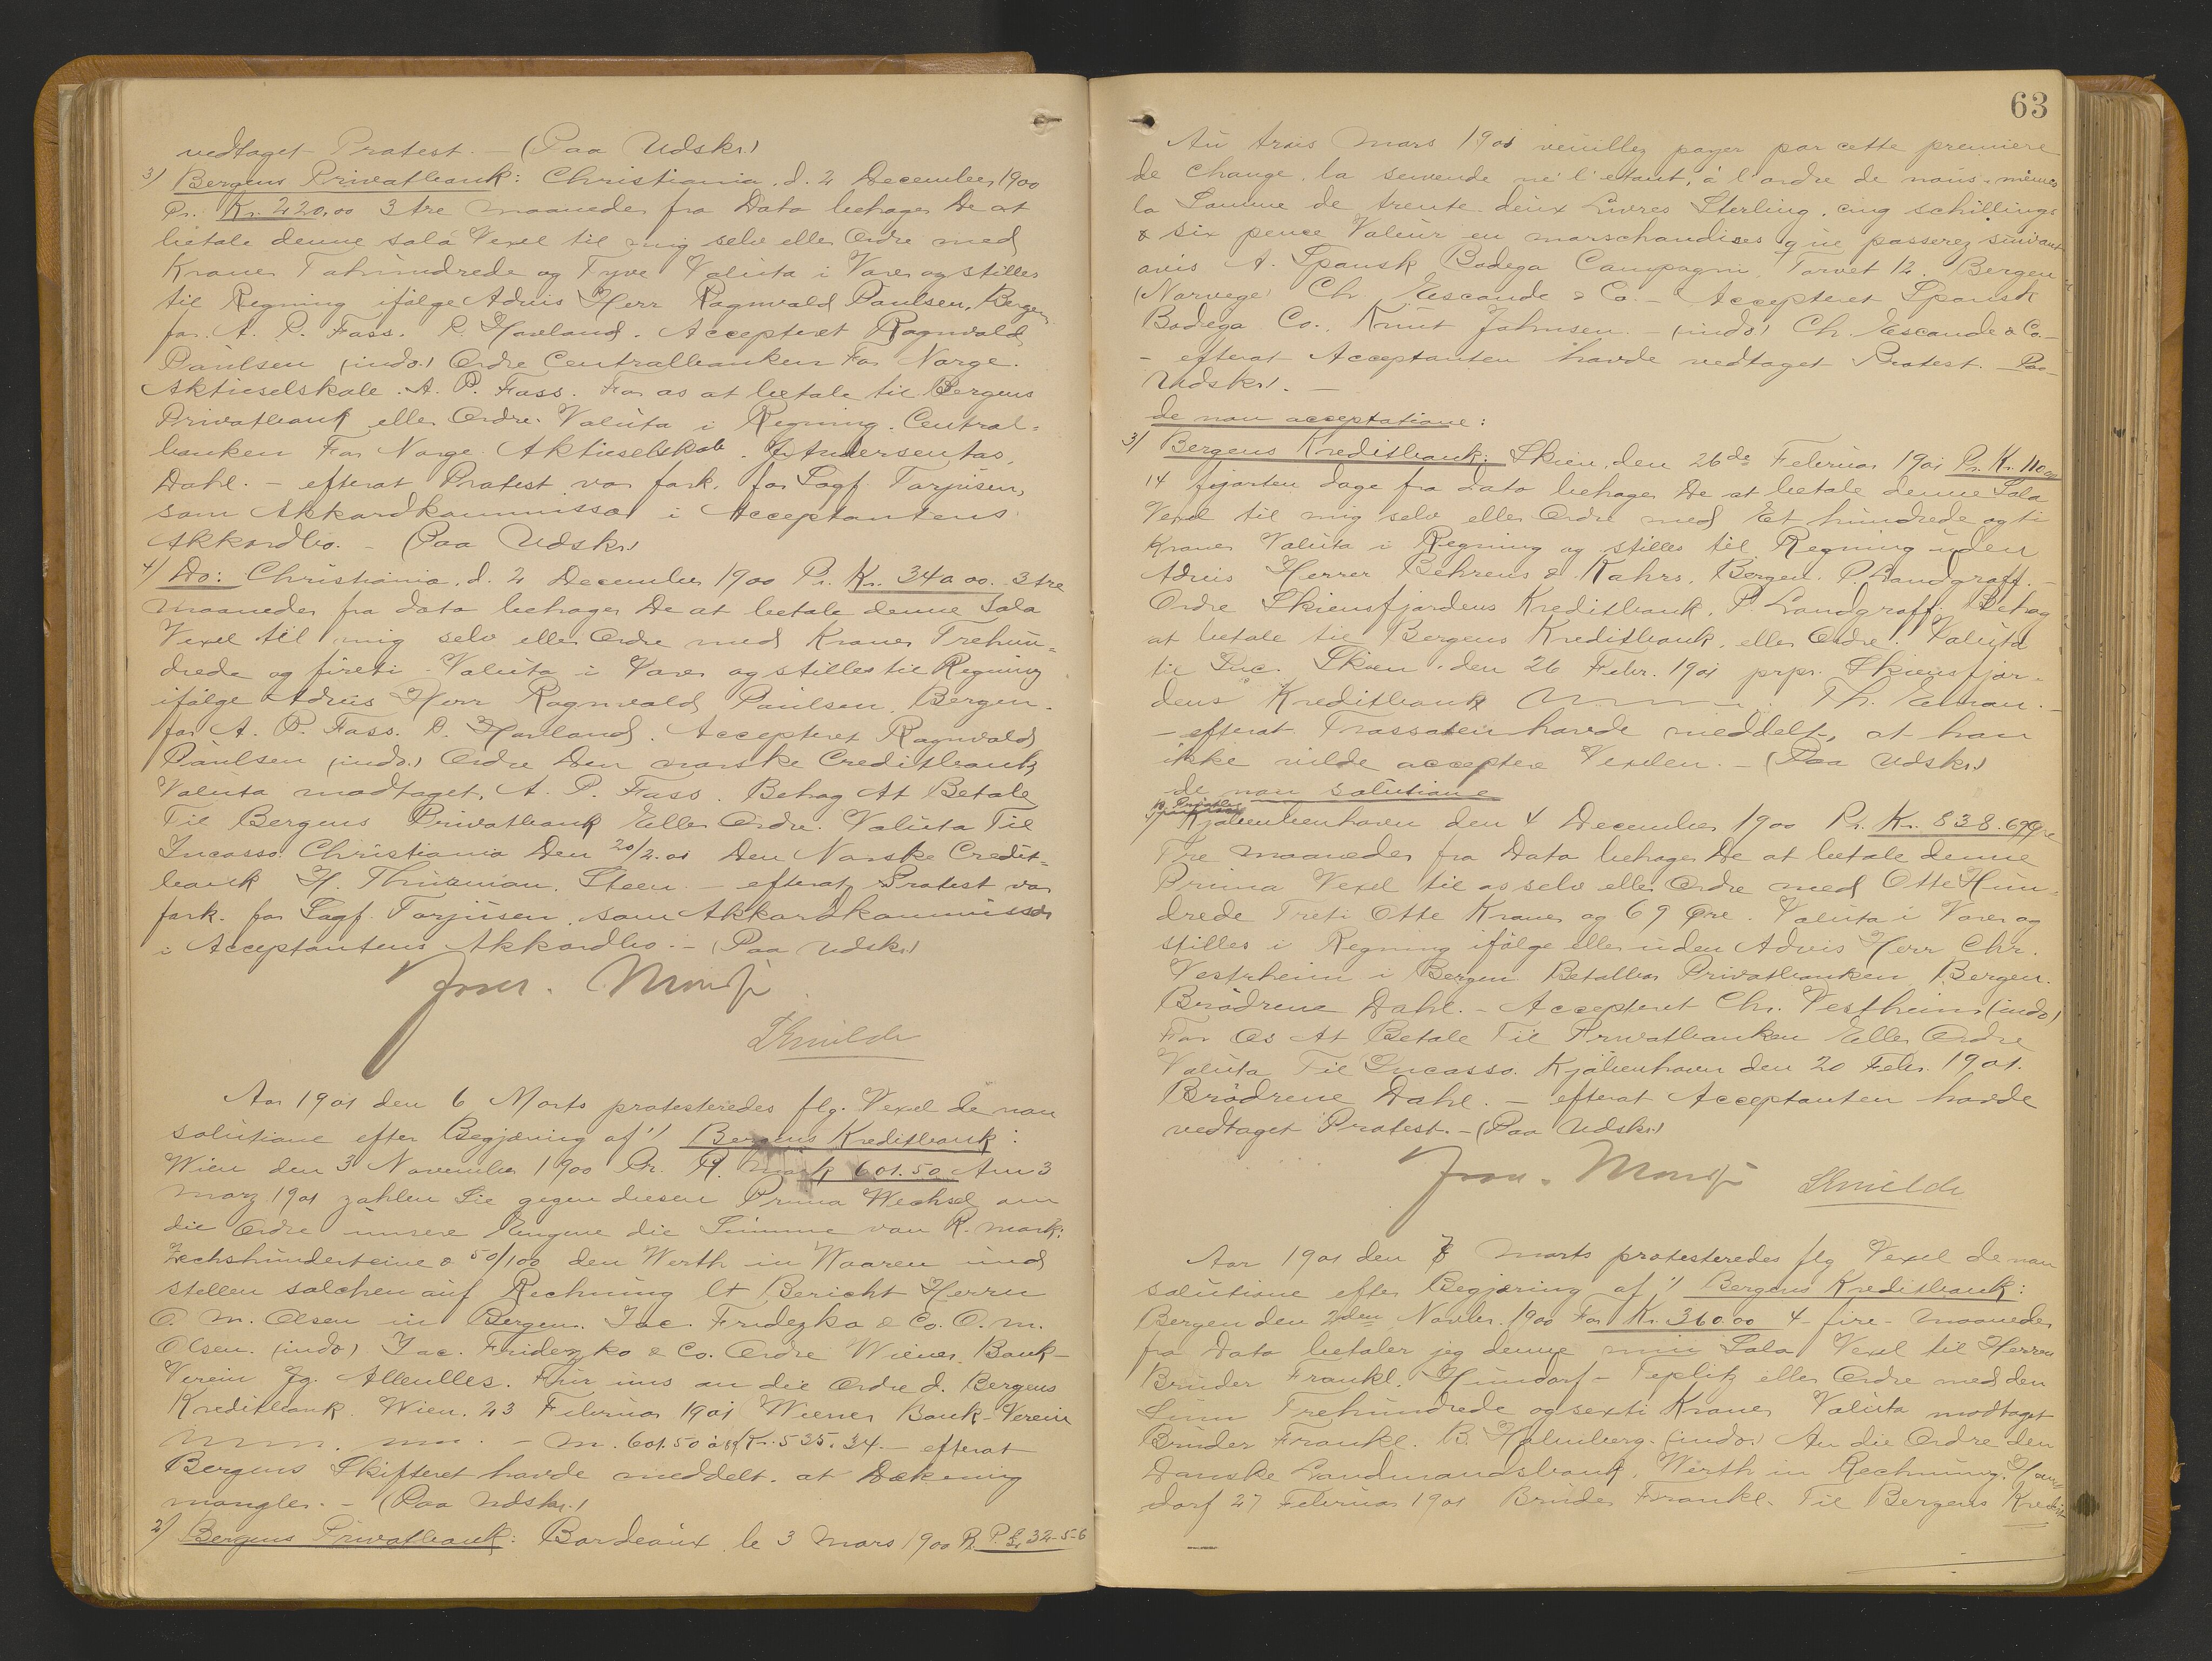 vedtaget Protest. – (Paa Udskr.)
3) Bergens Privatbank: Christiania, d. 2 December 1900
Pr. Kr. 220,00 3 tre maaneder fra Data behager De at
betale denne sola Vexel til mig selv eller Ordre med
Kroner Tohundrede og Tyve Valuta i Varer og stilles
til Regning ifølge Advis Herr Ragnvald Paulsen, Bergen
for A. P. Foss. P. Havland. Accepteret Ragnvald
Paulsen (indo.) Ordre Centralbanken For Norge.
Aktieselskab. A. P. Foss. For os at betale til Bergens
Privatbank eller Ordre. Valuta i Regning. Central-
banken For Norge Aktieselskab. Andersen
Dahl. – efterat Protest var fork. for Sagf. Torjusen,
som Akkordkommissær i Acceptantens
Akkordbo. – (Paa Udskr.)
4) Do: Christiania, d. 2 December 1900 Pr. Kr. 340 00. 3 tre
maaneder fra data behager De at betale denne Sola
Vexel til mig selv eller Ordre med Kroner Trehun-
drede og fireti – Valuta i Varer og stilles til Regning
ifølge Advis Herr Ragnvald Paulsen, Bergen.
for A. P. Foss. P. Havland. Accepteret Ragnvald
Paulsen (indo.) Ordre Den norske Creditbank
Valuta modtaget, A. P. Foss. Behag At Betale
Til Bergens Privatbank Eller Ordre. Valuta Til
Incasso. Christiania Den 20/2.01 Den Norske Credit-
bank H. Steen. – efterat Protest var
fork. for Sagf. Torjusen, som Akkordkommissær
i Acceptantens Akkordbo. – (Paa Udskr.)
Aar 1901 den 6 Marts protesteredes flg. Vexel de non
solutione efter Begjæring af 1) Bergens Kreditbank:
Wien den 3 November 1900 Pr. R. mark 601.50 Am 3
marz 1901 zahlen Sie gegen diesen Prima Wechsel an
die Ordre unsere die Summe von R. mark:
Zechshunderteine & 50/100 den Werth in Waaren und
stellen solchen auf Rechnung lt Bericht Herrn
O. M. Olsen in Bergen. Jac. Fridezko & Co. O. M.
Olsen. (indo) Jac. Fridezko & Co. Ordre Wiener Bank-
Verein Jg. Für uns an die Ordre d. Bergens
Kreditbank. Wien. 23 Februar 1901 Wiener Bank-Verein
– M. 601.50 à 89 Kr. 535.34. – efterat
Bergens Skifteret havde meddelt, at Dækning
mangler. – (Paa Udskr.)
2) Bergens Privatbank: Bordeaux, le 3 Mars 1900 P. £ 32-5-6
63
Au trois Mars 1901 veuillez payer par cette premiere
de change, la ne l'etant, à l'ordre de nous-mêmes
la Somme de trente deux Livres Sterling, cinq schillings
& six pence Valeur en marschandises que passerez suivant
avis A. Spansk Bodega Compagni Torvet 12. Bergen
(Norvege) Ch. Escande & Co. – Accepteret Spansk
Bodega Co., Knut Johnsen. – (indo) Ch. Escande & Co.
– efterat Acceptanten havde vedtaget Protest. – Paa
Udskr). –
de non acceptatione:
3) Bergens Kreditbank: Skien, den 26de Februar 1901 Pr. Kr. 110 00
14 fjorten dage fra dato behager De at betale denne Sola
Vexel til mig selv eller Ordre med Et hundrede og ti
Kroner Valuta i Regning og stilles til Regning uden
Advis Herrer Behrens & Kahrs, Bergen. P. Landgraff. –
Ordre Skiensfjordens Kreditbank, P. Landgraff. Behag
at betale til Bergens Kreditbank, eller Ordre. Valuta
til Inc. Skien. den 26 Febr. 1901 prpr. Skiensfjor-
dens Kreditbank Th. –
– efterat Trassaten havde meddelt, at han
ikke vilde acceptere Vexlen. – (Paa Udskr.)
de non solutione
Kjøbenhaven den 4 December 1900 Pr. Kr. 838.69 Øre
Tre maaneder fra Data behager De at betale denne
Prima Vexel til os selv eller Ordre med Otte Hun-
drede Treti Otte Kroner og 69 Øre. Valuta i Varer og
stilles i Regning ifølge eller uden Advis Herr Chr.
Vestrheim i Bergen. Betalbar Privatbanken Bergen.
Brødrene Dahl. – Accepteret Chr. Vestheim (indo)
For Os At Betale Til Privatbanken Eller Ordre
Valuta Til Incasso. Kjøbenhavn den 20 Febr. 1901.
Brødrene Dahl. – efterat Acceptanten havde
vedtaget Protest. – (Paa Udskr.)
Aar 1901 den 7 Marts protesteredes flg Vexel de non
solutione efter Begjæring af 1) Bergens Kreditbank:
Bergen den 2den Novbr. 1900 For Kr. 360.00 4 – fire – maaneder
fra Dato betaler jeg denne min Sola Vexel til Herren
Bruder Frankl. – Teplitz eller Ordre med den
Sum Trehundrede og sexti Kroner Valuta modtaget
Bruder Frankl. B. Holmberg. (indo.) An die Ordre den
Danske Landmandsbank. Werth in Rechnung.
dorf 27 Februar 1901 Bruder Frankl. Til Bergens Kredit